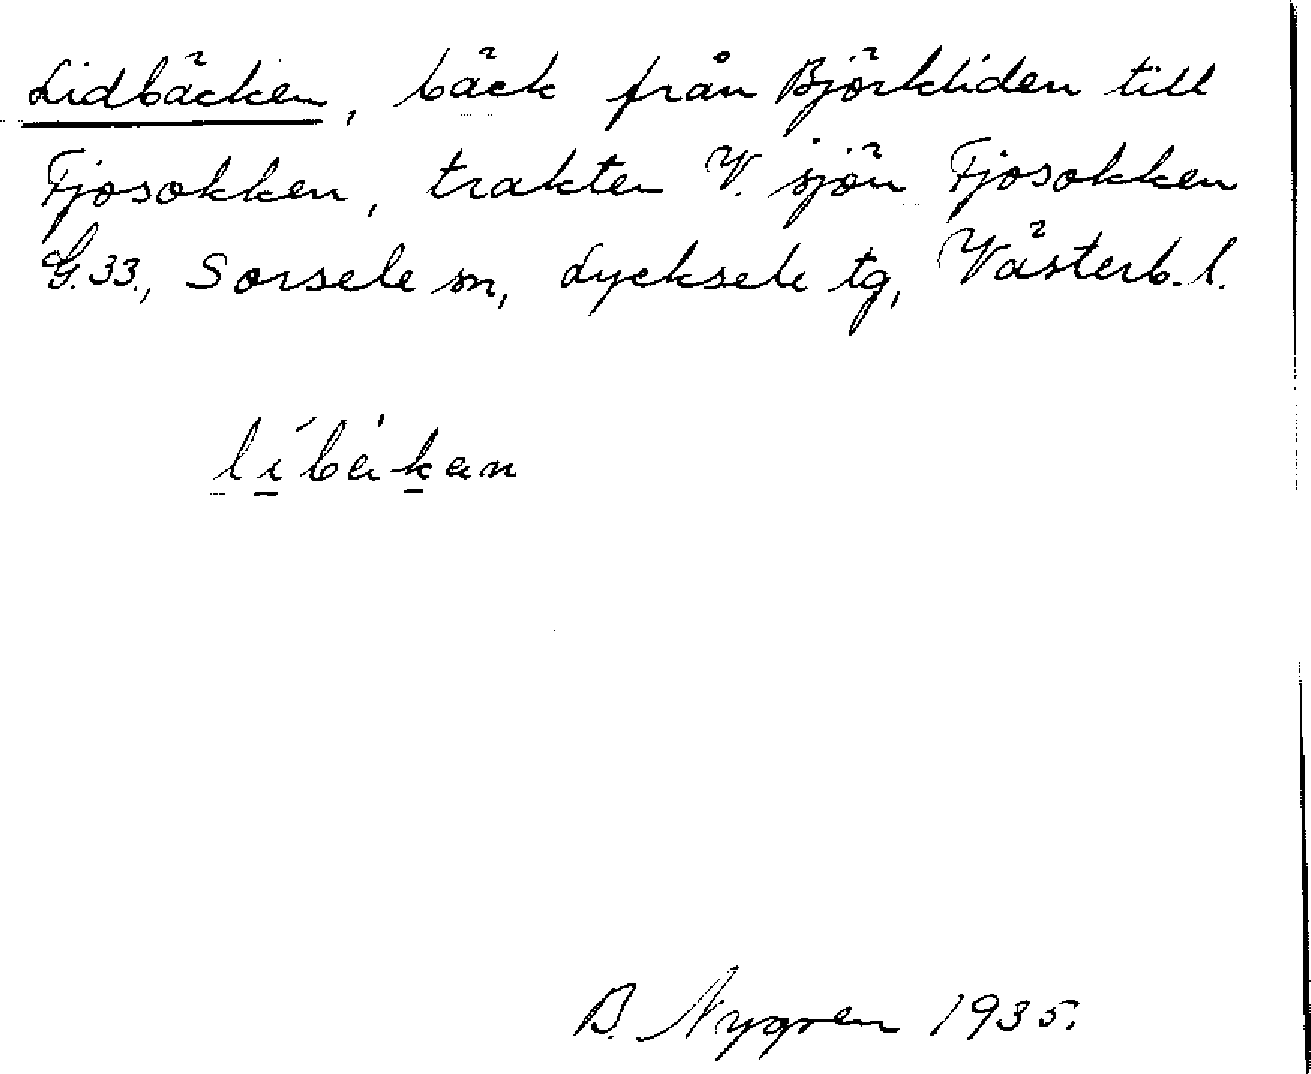 Lidbäcken, bäck från Björkliden till
Fjosokken, trakten V. sjön Fjosokken
G.33., Sorsele sn, Lycksele tg, Västerb. l.
líbèkan
B. Nygren 1935.